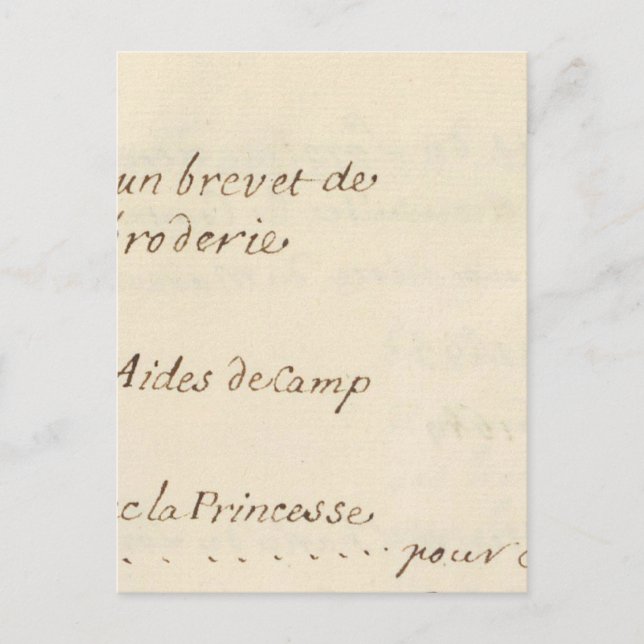 un brevet de
broderie
Aides de Camp
ec la Princesse
. . . . . . . . . . . . . . . . pour